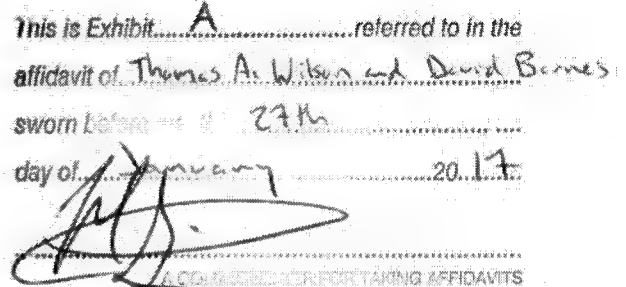 This is Exhibit......A......referred to in the
affidavit of Thomas A. Wilson and David Barnes
sworn before 27th
day of January 2017
A COMMISSIONER FOR TAKING AFFIDAVITS